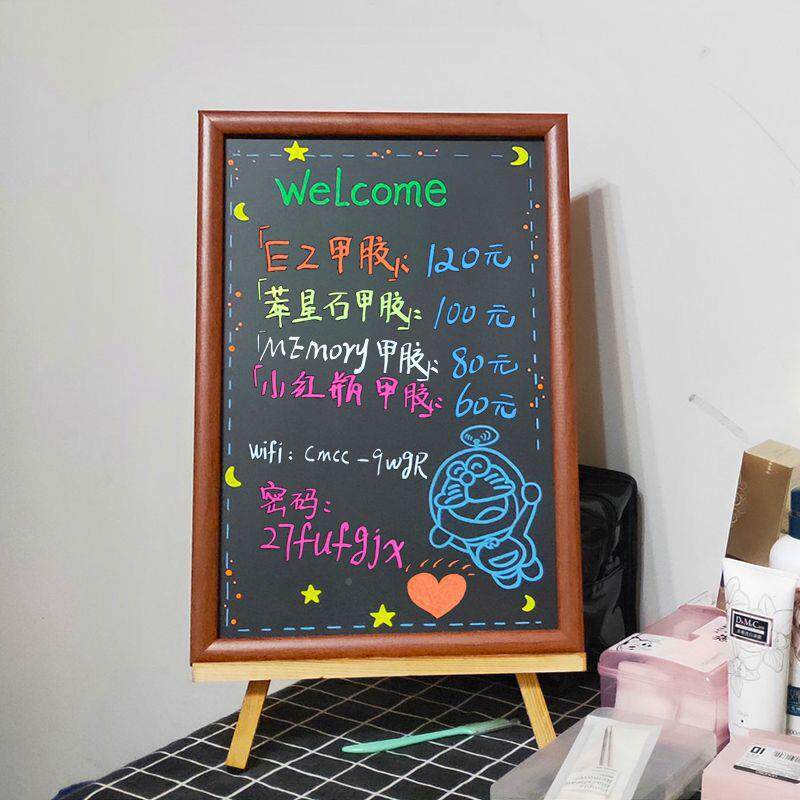 WeLcome
「EZ甲胶」: 120元
「萃星石甲胶」: 100元
「MEmory甲胶」: 80元
「小红瓶甲胶」: 60元
wifi: cmcc-9wgR
密码:
27fufgjx
DeMeCare